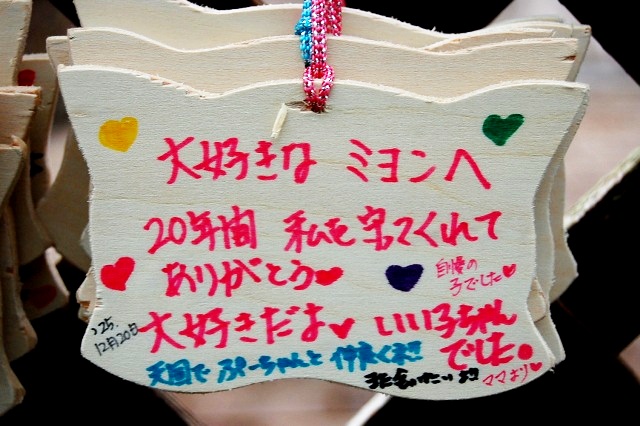 大好きな ミヨンへ
20年間 私を宝てくれて
ありがとう♥
自慢の
子でした♥
大好きだよ♥ いい子ちゃん
でした。
'25.
12月20日
天国で ぷーちゃんと 仲良くネ!!
また会いたいよ!!
ママより♡